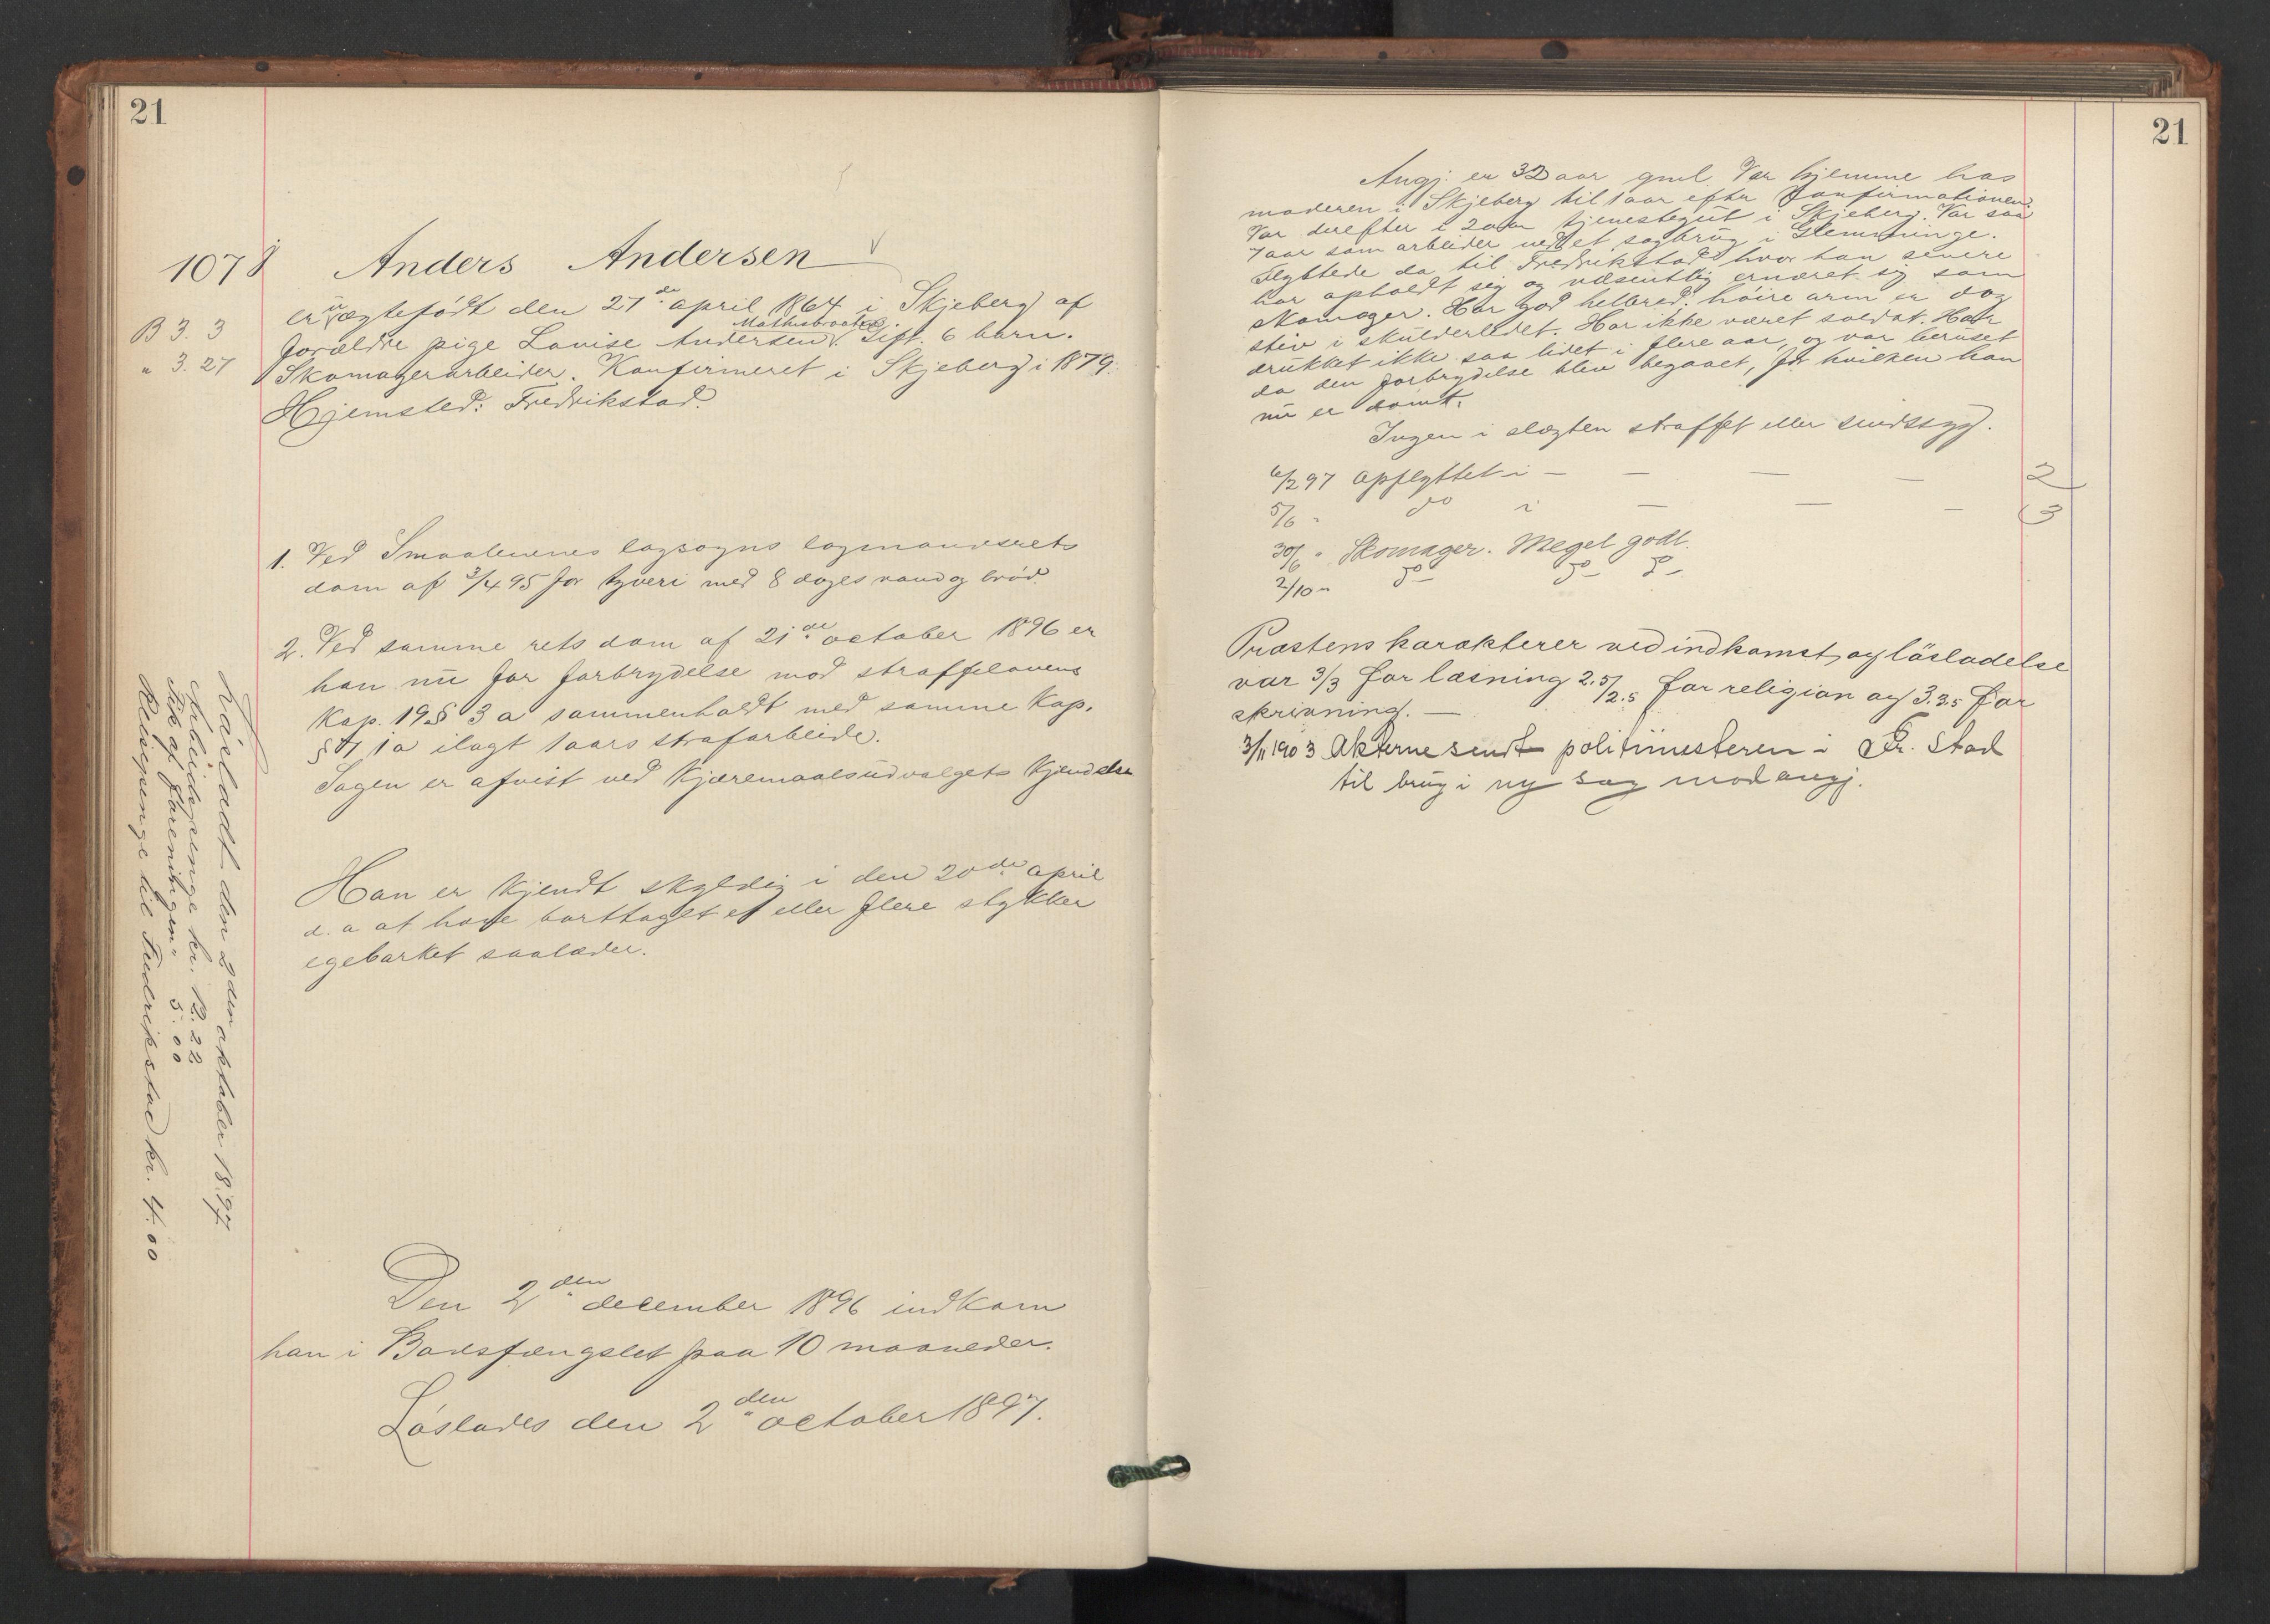 21
1078 Anders Andersen
B 3. 3
" 3. 27
er uægtefødt den 27de april 1864 i Skjeberg af
forældre pige Lovise Andersen. Gift. 6 børn.
Skomagerarbeider. Konfirmeret i Skjeberg i 1879.
Hjemsted: Fredrikstad.
1. Ved Smaalenenes lagsogns lagmandsrets
dom af 3/4 95 for tyveri med 8 dages vand og brød.
2. Ved samme rets dom af 21de october 1896 er
han nu for forbrydelse mod straffelovens
Kap. 19 § 3 a sammenholdt med samme Kap.
§ 7 1a ilagt 1 aars strafarbeide.
Sagen er afvist ved Kjæremaalsudvalgets Kjendelse
Han er Kjendt skyldig i den 20de april
d. a at have borttaget et eller flere stykker
egebarket saalæder.
Den 2den december 1896 indkom
han i Bodsfængslet paa 10 maaneder.
Løslades den 2den october 1897.
Løsladt den 2den oktober 1897.
Arbeidspenge kr. 12.22
Fik af foreningen " 5.00
Reisepenge til Fredrikstad kr. 4.00
21
Angj. er 32 aar gml. Var hjemme hos
moderen i Skjeberg til 1 aar efter Konfirmationen.
Var derefter i 2 aar tjenestegut i Skjeberg. Var saa
7 aar som arbeider ved et sagbrug i Glemminge.
Flyttede da til Fredrikstad hvor han senere
har opholdt sig og væsentlig ernæret sig som
skomager. Har god helbred. høire arm er dog
stiv i skulderledet. Har ikke været soldat. Har
drukket ikke saa lidet i flere aar, og var beruset
da den forbrydelse blev begaaet, for hvilken han
nu er dømt.
Ingen i slægten straffet eller sindssyg.
6/2 97 opflyttet i — — — — 2
5/6 " do i — — — 3
30/6 " Skomager. Meget godt.
2/10 " do do do
Præstens karakterer ved indkomst og løsladelse
var 3/3 for læsning 2.5/2.5 for religion og 3.3.5 for
skrivning. —
3/11 1903 Akterne sendt politimesteren i Fr. Stad
til brug i ny sag mod angj.